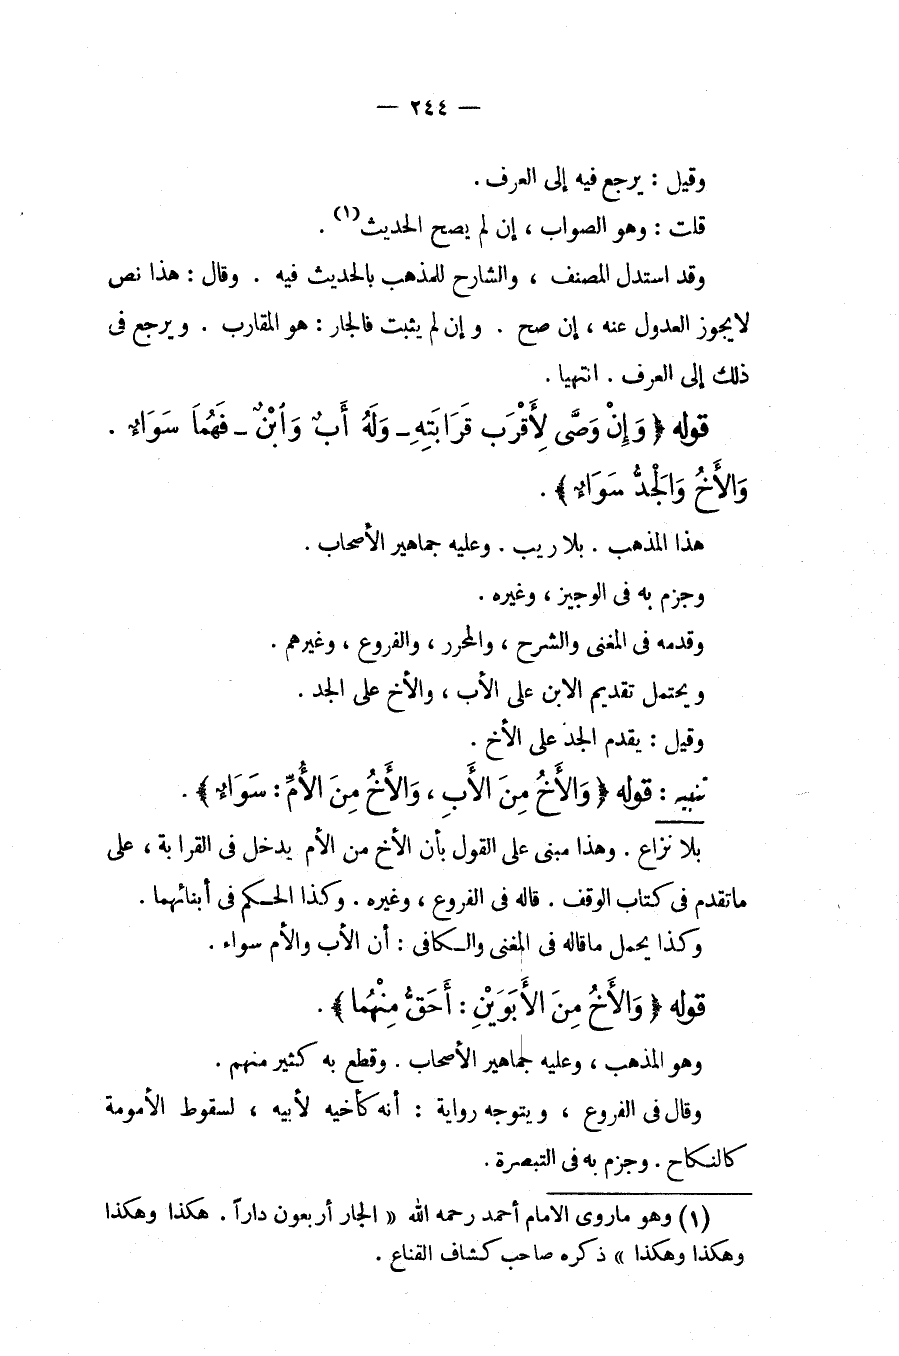 — ٢٤٤ —
وقيل : يرجع فيه إلى العرف .
قلت : وهو الصواب ، إن لم يصح الحديث(١) .
وقد استدل المصنف ، والشارح للمذهب بالحديث فيه . وقال : هذا نص
لا يجوز العدول عنه ، إن صح . وإن لم يثبت فالجار : هو المقارب . ويرجع فى
ذلك إلى العرف . انتهيا .
قوله ﴿ وَإِنْ وَصَّى لِأَقْرَبِ قَرَابَتِهِ ـ وَلَهُ أَبٌ وَابْنٌ ـ فَهُمَا سَوَاءٌ .
وَالأَخُ وَالْجَدُّ سَوَاءٌ ﴾ .
هذا المذهب . بلا ريب . وعليه جماهير الأصحاب .
وجزم به فى الوجيز ، وغيره .
وقدمه فى المغنى والشرح ، والمحرر ، والفروع ، وغيرهم .
ويحتمل تقديم الابن على الأب ، والأخ على الجد .
وقيل : يقدم الجد على الأخ .
تنبيه : قوله ﴿ وَالأَخُ مِنَ الأَبِ ، وَالأَخُ مِنَ الأُمِّ : سَوَاءٌ ﴾ .
بلا نزاع . وهذا مبنى على القول بأن الأخ من الأم يدخل فى القرابة ، على
ماتقدم فى كتاب الوقف . قاله فى الفروع ، وغيره . وكذا الحكم فى أبنائهما .
وكذا يحمل ماقاله فى المغنى والكافى : أن الأب والأم سواء .
قوله ﴿ وَالأَخُ مِنَ الأَبَوَيْنِ : أَحَقُّ مِنْهُمَا ﴾ .
وهو المذهب ، وعليه جماهير الأصحاب . وقطع به كثير منهم .
وقال فى الفروع ، ويتوجه رواية : أنه كأخيه لأبيه ، لسقوط الأمومة
كالنكاح . وجزم به فى التبصرة .
(١) وهو ماروى الامام أحمد رحمه الله « الجار أربعون داراً . هكذا وهكذا
وهكذا وهكذا » ذكره صاحب كشاف القناع .